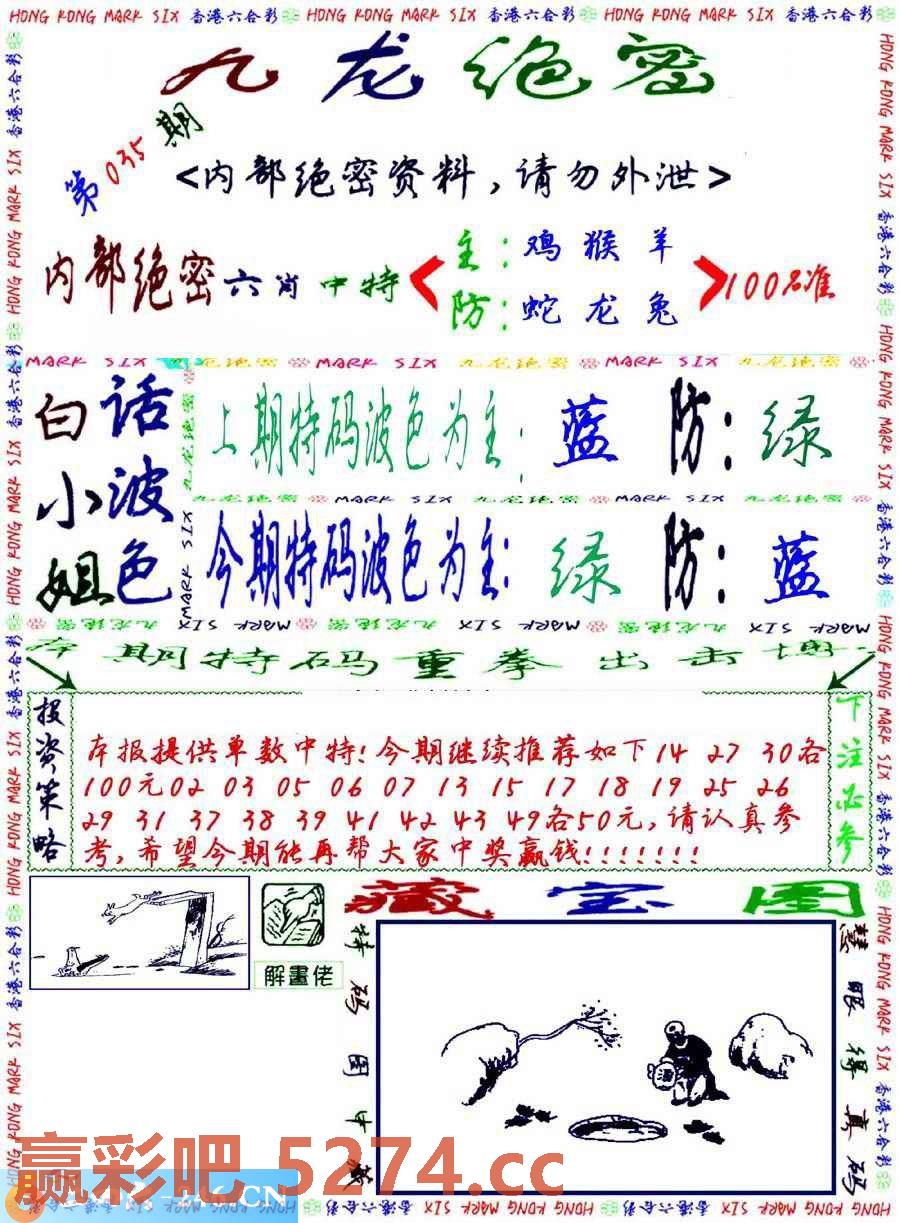 HONG KONG MARK SIX 香港六合彩 HONG KONG MARK SIX 香港六合彩 HONG KONG MARK SIX 香港六合彩
九龙绝密
第035期
<内部绝密资料,请勿外泄>
内部绝密六肖中特
主:鸡猴羊
防:蛇龙兔
100%准
MARK SIX 九龙绝密 MARK SIX 九龙绝密 MARK SIX 九龙绝密
白话
小波
姐色
上期特码波色为主:蓝 防:绿
九龙绝密 MARK SIX 九龙绝密 MARK SIX 九龙绝密
今期特码波色为主:绿 防:蓝
本期特码重拳出击
投资策略
本报提供单数中特!今期继续推荐如下14 27 30各
100元02 03 05 06 07 13 15 17 18 19 25 26
29 31 37 38 39 41 42 43 49各50元,请认真参
考,希望今期能再帮大家中奖赢钱!!!!!!!
下注必参
解畫佬
藏宝图
特码图中
慧眼得真码
酒
赢彩吧 5274.cc
.CN